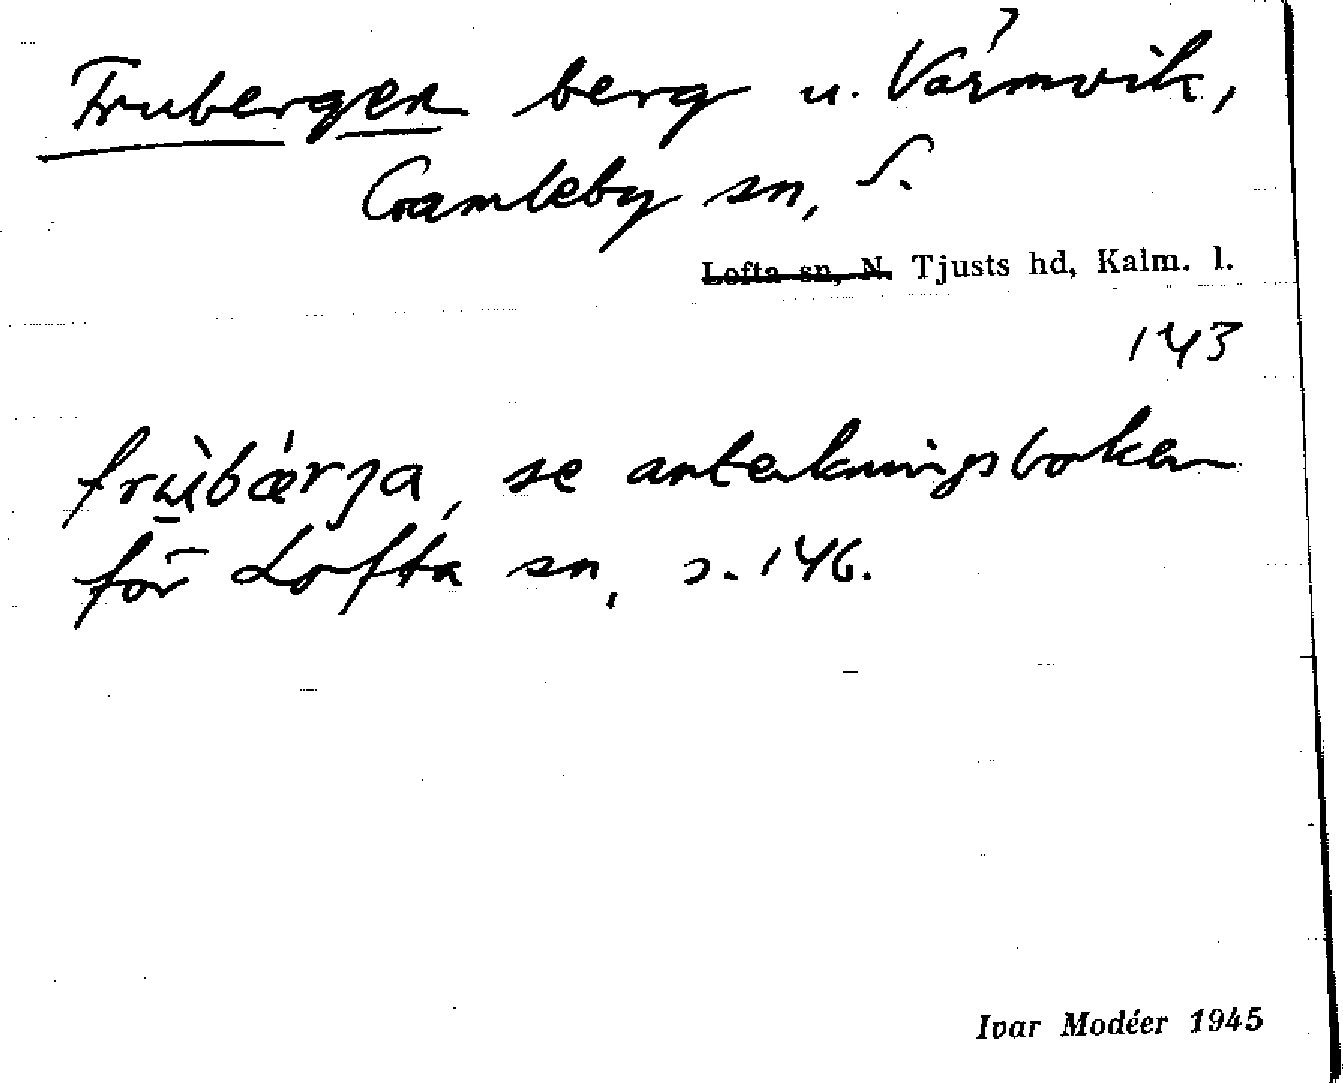 Frubergen berg u. Värmvik,
Gamleby sn, S.
Lofta sn, N. Tjusts hd, Kalm. l.
143
frùbǽrja, se anteckningsboken
för Lofta sn, s. 146.
Ivar Modéer 1945